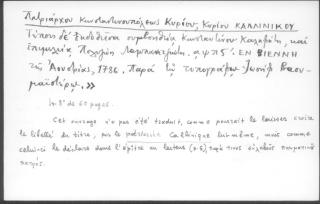 Πατριάρχου Κωνσταντινουπόλεως Κυρίου, Κυρίου ΚΑΛΛΙΝΙΚΟΥ
Τύποις δὲ ἐκδοθεῖσα Κωνσταντίνου καὶ
ἐπιμελείᾳ Πολυζώη Λαμπανιτζιώτη. αψπς΄. ΕΝ ΒΙΕΝΝΗ
τῆς Αουστρίας, 1786. Παρὰ τῷ τυπογράφῳ Ἰωσὴφ Βαου-
μαϊστέρῳ. »
in 8° de 60 pages.
Cet ouvrage n'a pas été traduit, comme pourrait le laisser croire
le libellé du titre, par le patriarche Callinique lui-même, mais comme
celui-ci le déclare dans l'épître au lecteur (p. 6) παρά τινος
πατρός.